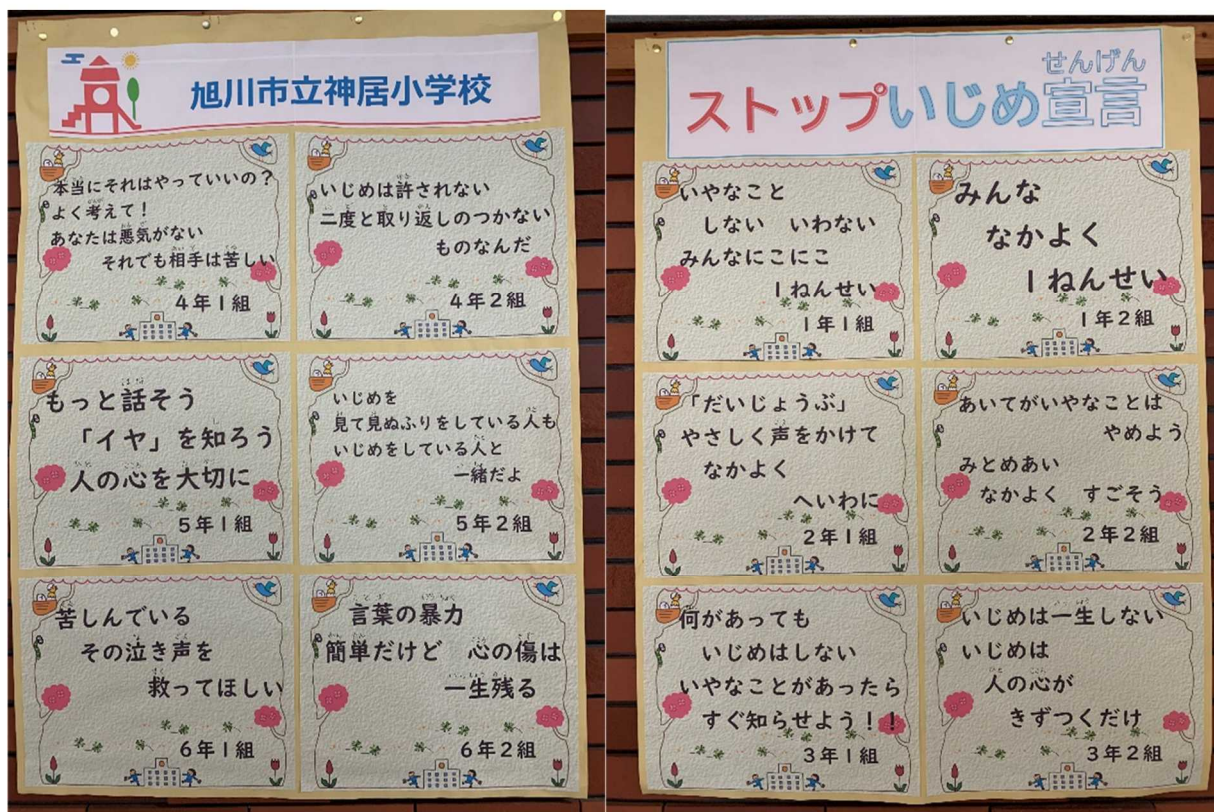 旭川市立神居小学校
本当にそれはやっていいの？
よく考えて！
あなたは悪気がない
それでも相手は苦しい
4年1組
いじめは許されない
二度と取り返しのつかない
ものなんだ
4年2組
もっと話そう
「イヤ」を知ろう
人の心を大切に
5年1組
いじめを
見て見ぬふりをしている人も
いじめをしている人と
一緒だよ
5年2組
苦しんでいる
その泣き声を
救ってほしい
6年1組
言葉の暴力
簡単だけど　心の傷は
一生残る
6年2組
せんげん
ストップいじめ宣言
いやなこと
しない　いわない
みんなにこにこ
1ねんせい
1年1組
みんな
なかよく
1ねんせい
1年2組
「だいじょうぶ」
やさしく声をかけて
なかよく
へいわに
2年1組
あいてがいやなことは
やめよう
みとめあい
なかよく　すごそう
2年2組
何があっても
いじめはしない
いやなことがあったら
すぐ知らせよう！！
3年1組
いじめは一生しない
いじめは
人の心が
きずつくだけ
3年2組